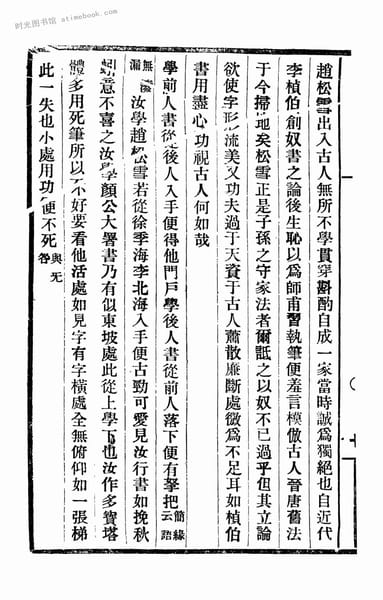 时光图书馆 - atimebook.com
趙松雪出入古人無所不學貫穿斟酌自成一家當時誠爲獨絕也自近代
李楨伯創奴書之論後生恥以爲師甫習執筆便羞言模倣古人晉唐舊法
于今掃地矣松雪正是子孫之守家法者爾詆之以奴不已過乎但其立論
欲使字形流美又功夫過于天資于古人蕭散廉斷處微爲不足耳如楨伯
書用盡心功視古人何如哉
學前人書從後人入手便得他門戶學後人書從前人落下便有拏把簡緣云語
無漏汝學趙松雪若從徐季海李北海入手便古勁可愛見汝行書如挽秋
意不喜之汝學顏公大署書乃有似東坡處此從上學下也汝作多寶塔
體多用死筆所以不好要看他活處如見字有字橫處全無俯仰如一張梯
此一失也小處用功便不死與无咎